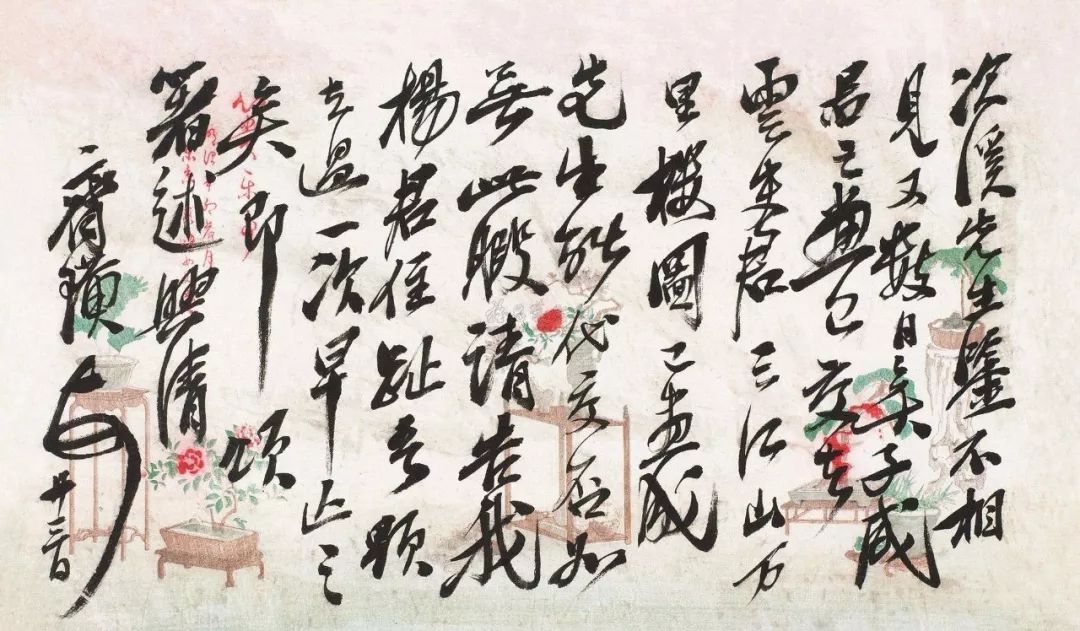 次溪先生鑒不相
見又數日矣子威
君之畫已交去
雲史君之江山万
里樓圖已畫成
先生能代交否如
無此暇請告我
楊君住趾吾願
去過一次早
矣即 頌
著述興清
齊璜
廿三日